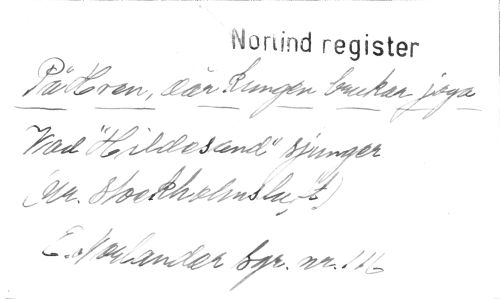 Norlind register
På Hven, där kungen brukar jaga
Vad "Hildesand" sjunger
(ur. Stockholmsluft)
E. Norlander Sgr. nr. 116